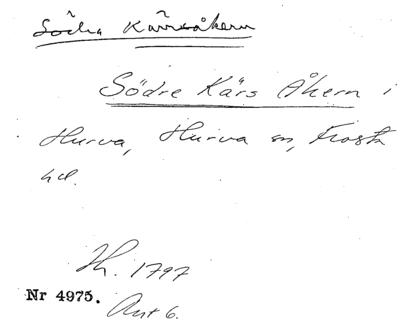 Södra Kärrsåkern
Södre Kärs Åkern i
Hurva, Hurva sn, Frosta
hd.
Th. 1797
Nr 4975.
Akt 6.